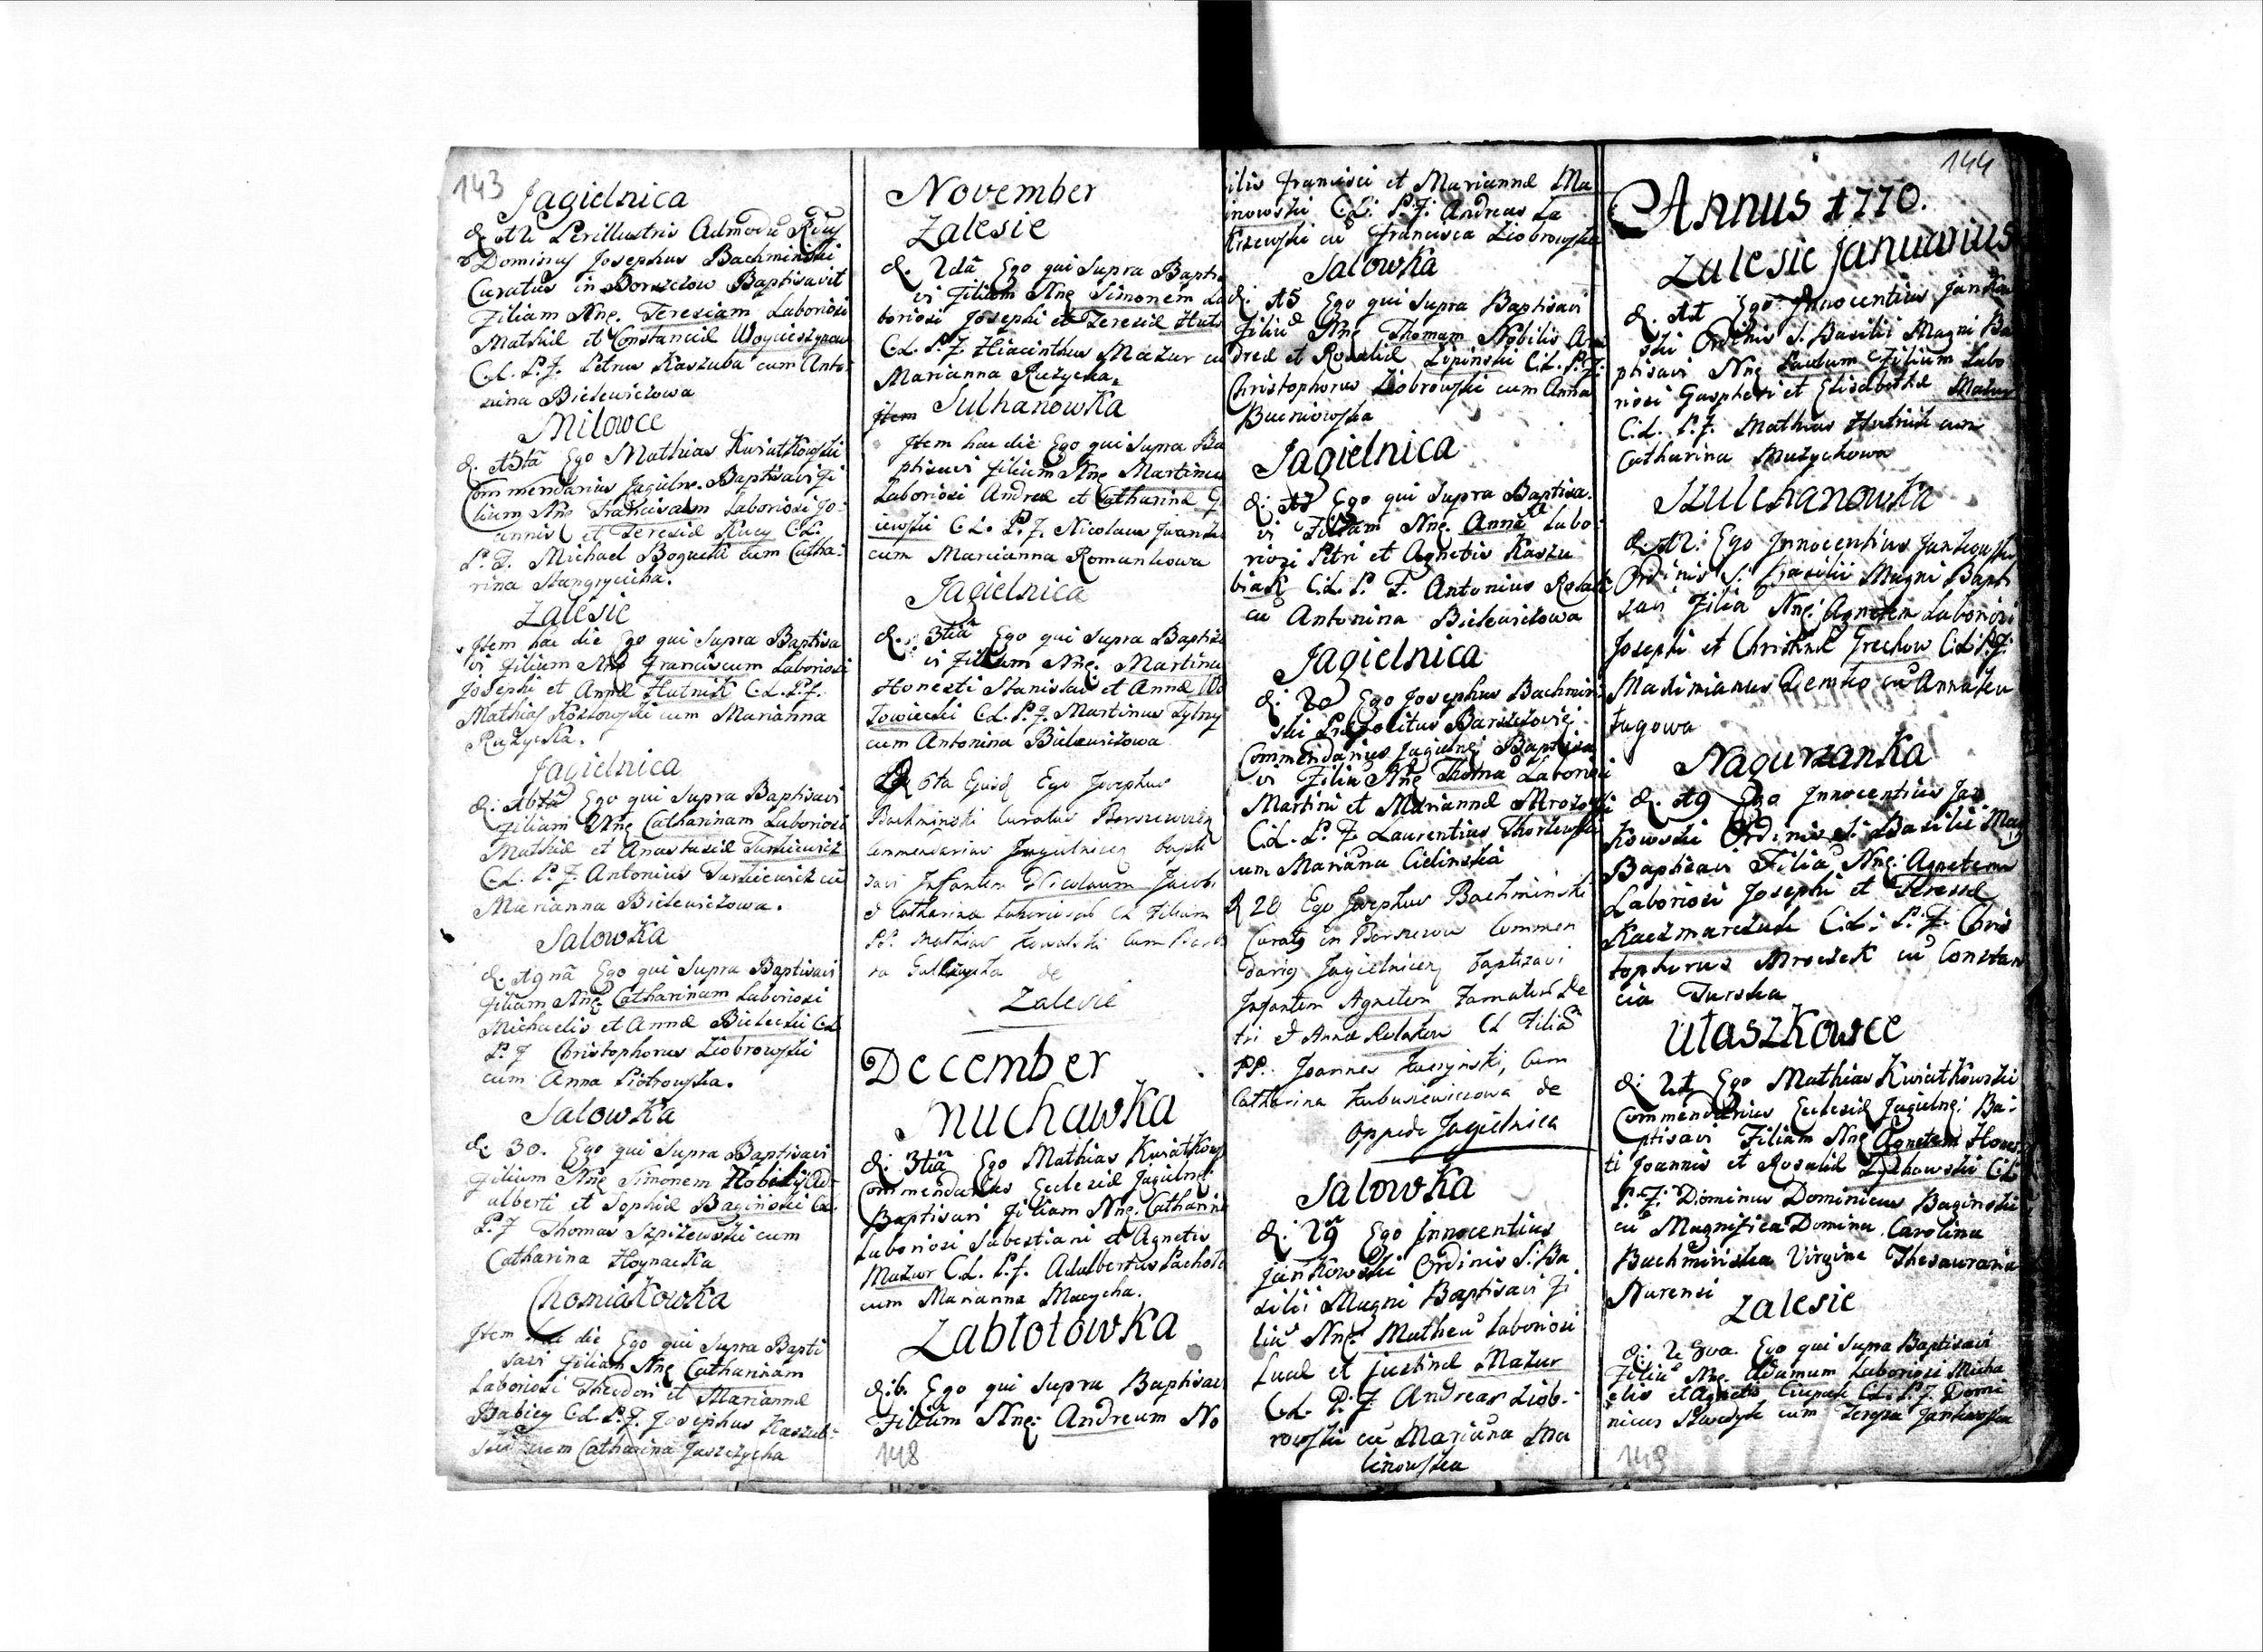 143
Jagielnica
d. 12 Perillustris Admodũ Rdus
Dominus Josephus Bachminski
Curatus in Borszczow Baptisavit
Filiam Nne. Teresiam Laboriosi
Mathiæ et Constanciæ
C.L. P.F. Petrus Kaszuba cum Anto
nina Bielewiczowa
Milowce
d. 15tã Ego Mathias Kwiatkowski
Commendarius Jagieln. Baptisavi Fi
lium Nne Franciscum Laboriosi Jo-
annis et Teresiæ Kucy C.L.
P.F. Michael Bogucki cum Catha-
rina
Zalesie
Item hac die Ego qui Supra Baptisa
vi Filium Nne Franciscum Laboriosi
Josephi et Annæ Hutnik C.L. P.F.
Mathias Kozłowski cum Marianna
Ruzycka.
Jagielnica
d. 16tã Ego qui Supra Baptisavi
Filiam Nne Catharinam Laboriosi
Mathiæ et Anastasiæ Turkiewicz
C.L. P.F. Antonius Turkiewicz cũ
Marianna Bielewiczowa.
Salowka
d. 19nã Ego qui Supra Baptisavi
Filiam Nne Catharinam Laboriosi
Michaelis et Annæ Bielecki C.L.
P.F. Christophorus Ziobrowski
cum Anna Piotrowska.
Salowka
d. 30. Ego qui Supra Baptisavi
Filium Nne Simonem Nobilis Ad-
alberti et Sophiæ Baginski C.L.
P.F. Thomas Szpilewski cum
Catharina Hoynacka
Chomiakowka
Item hac die Ego qui Supra Bapti
savi Filiam Nne Catharinam
Laboriosi Theodori et Mariannæ
Babiey C.L. P.F. Josephus Kaszub-
ski cum Catharina Jaszczycha
November
Zalesie
d. 2dã Ego qui Supra Baptisa
vi Filium Nne Simonem La
boriosi Josephi et Teresiæ Hutn
C.L. P.F. Hiacinthus Mazur cu
Marianna Ruzycka.
Item Sulhanowka
Item hac die Ego qui Supra Ba
ptisavi Filium Nne Martinum
Laboriosi Andreæ et Catharinæ
C.L. P.F. Nicolaus
cum Marianna Romankowa
Jagielnica
d. 3tiã Ego qui Supra Baptisa
vi Filium Nne. Martinu
Honesti Stanislai et Annæ Wo
lowiecki C.L. P.F. Martinus Tylny
cum Antonina Bielewiczowa
D 6ta Ejusd Ego Josephus
Bachminski Curatus
Commendarius Jagielnicen bapti
savi Infantem Nicolaum Jacobi
& Catharina CL Filium
PP. Mathias Kowalski Cum
de
Zalesie
December
Muchawka
d. 3tiã Ego Mathias Kwiatkows
Commendarius Ecclesiæ Jagielne
Baptisavi Filiam Nne. Catharina
Laboriosi Sabestiani et Agnetis
Mazur C.L. P.F. Adalbertus Pachol
cum Marianna Macycha.
Zabłotowka
d. 6. Ego qui Supra Baptisavi
Filium Nne: Andream No
148
ilis Francisci et Mariannæ Ma
inowski C.L. P.F. Andreas La
cũ Francisca Ziobrowska
Salowka
d. 15 Ego qui Supra Baptisavi
Filiũ Nne Thomam Nobilis An
dreæ et Rosaliæ Lipinski C.L. P.F.
Christophorus Ziobrowski cum Anna
Jagielnica
d. 17 Ego qui Supra Baptisa-
vi Filiam Nne. Annã Labo-
riosi Petri et Agnetis Kaszu
biak C.L. P.F. Antonius
cũ Antonina Bielewiczowa
Jagielnica
d. 20 Ego Josephus Bachmin-
ski Præpositus
Commendarius Jagielne Baptisa
vi Filiũ Nne Thomã Laboriosi
Martini et Mariannæ
C.L. P.F. Laurentius
cum Marianna Cielinska
d 28 Ego Josephus Bachminski
Curatus in Commen
darius Jagielnicen baptizavi
Infantem Agnetem
tri & Annæ CL Filiã
PP. Joannes Cum
Catharina Kubusiewiczowa de
Oppido Jagielnica
Salowka
d. 29 Ego Innocentius
Jankowski Ordinis S. Ba
silii Magni Baptisavi Fi
liũ Nne: Matheũ Laboriosi
Lucæ et Justinæ Mazur
C.L. P.F. Andreas Ziob-
rowski cũ Marianna Ma
linowska
144
Annus 1770.
Zalesie Januarius
d. 11 Ego Innocentius Janko
ski Ordinis S. Basilii Magni Ba
ptisavi Nne Paulum Filium Labo
riosi Gaspheri et Elisabethæ Mazur
C.L. P.F. Mathias Hutnik cum
Catharina Muzychowa
Szulchanowka
d. 12. Ego Innocentius Jankowski
Ordinis S. Basilii Magni Bapti
savi Filiã Nne: Agnetem Laboriosi
Josephi et Christinæ Grechow C.L. P.F.
Maximianus Demko cũ Anna
Nagurzanka
d. 19 Ego Innocentius Jan
kowski Ordinis S. Basilii Mag
Baptisavi Filiã Nne: Agnetem
Laboriosi Josephi et Teressæ
Kaczmarczuk C.L. P.F. Chris
tophorus Mroczek cũ Constan
cia Turska
Ułaszkowce
d. 21 Ego Mathias Kwiatkowski
Commendarius Ecclesiæ Jagielne: Ba-
ptisavi Filiam Nne Agnetem Hones
ti Joannis et Rosaliæ C.L.
P.F. Dominus Dominicus Baginski
cũ Magnifica Domina Carolina
Bachminska Virgine Thesauraria
Nurensi
Zalesie
d. Ego qui Supra Baptisavi
Filiũ Nne. Adamum Laboriosi Micha
elis et Agnetis Ciupak C.L. P.F. Domi
nicus cum Teressa Jankowska
149